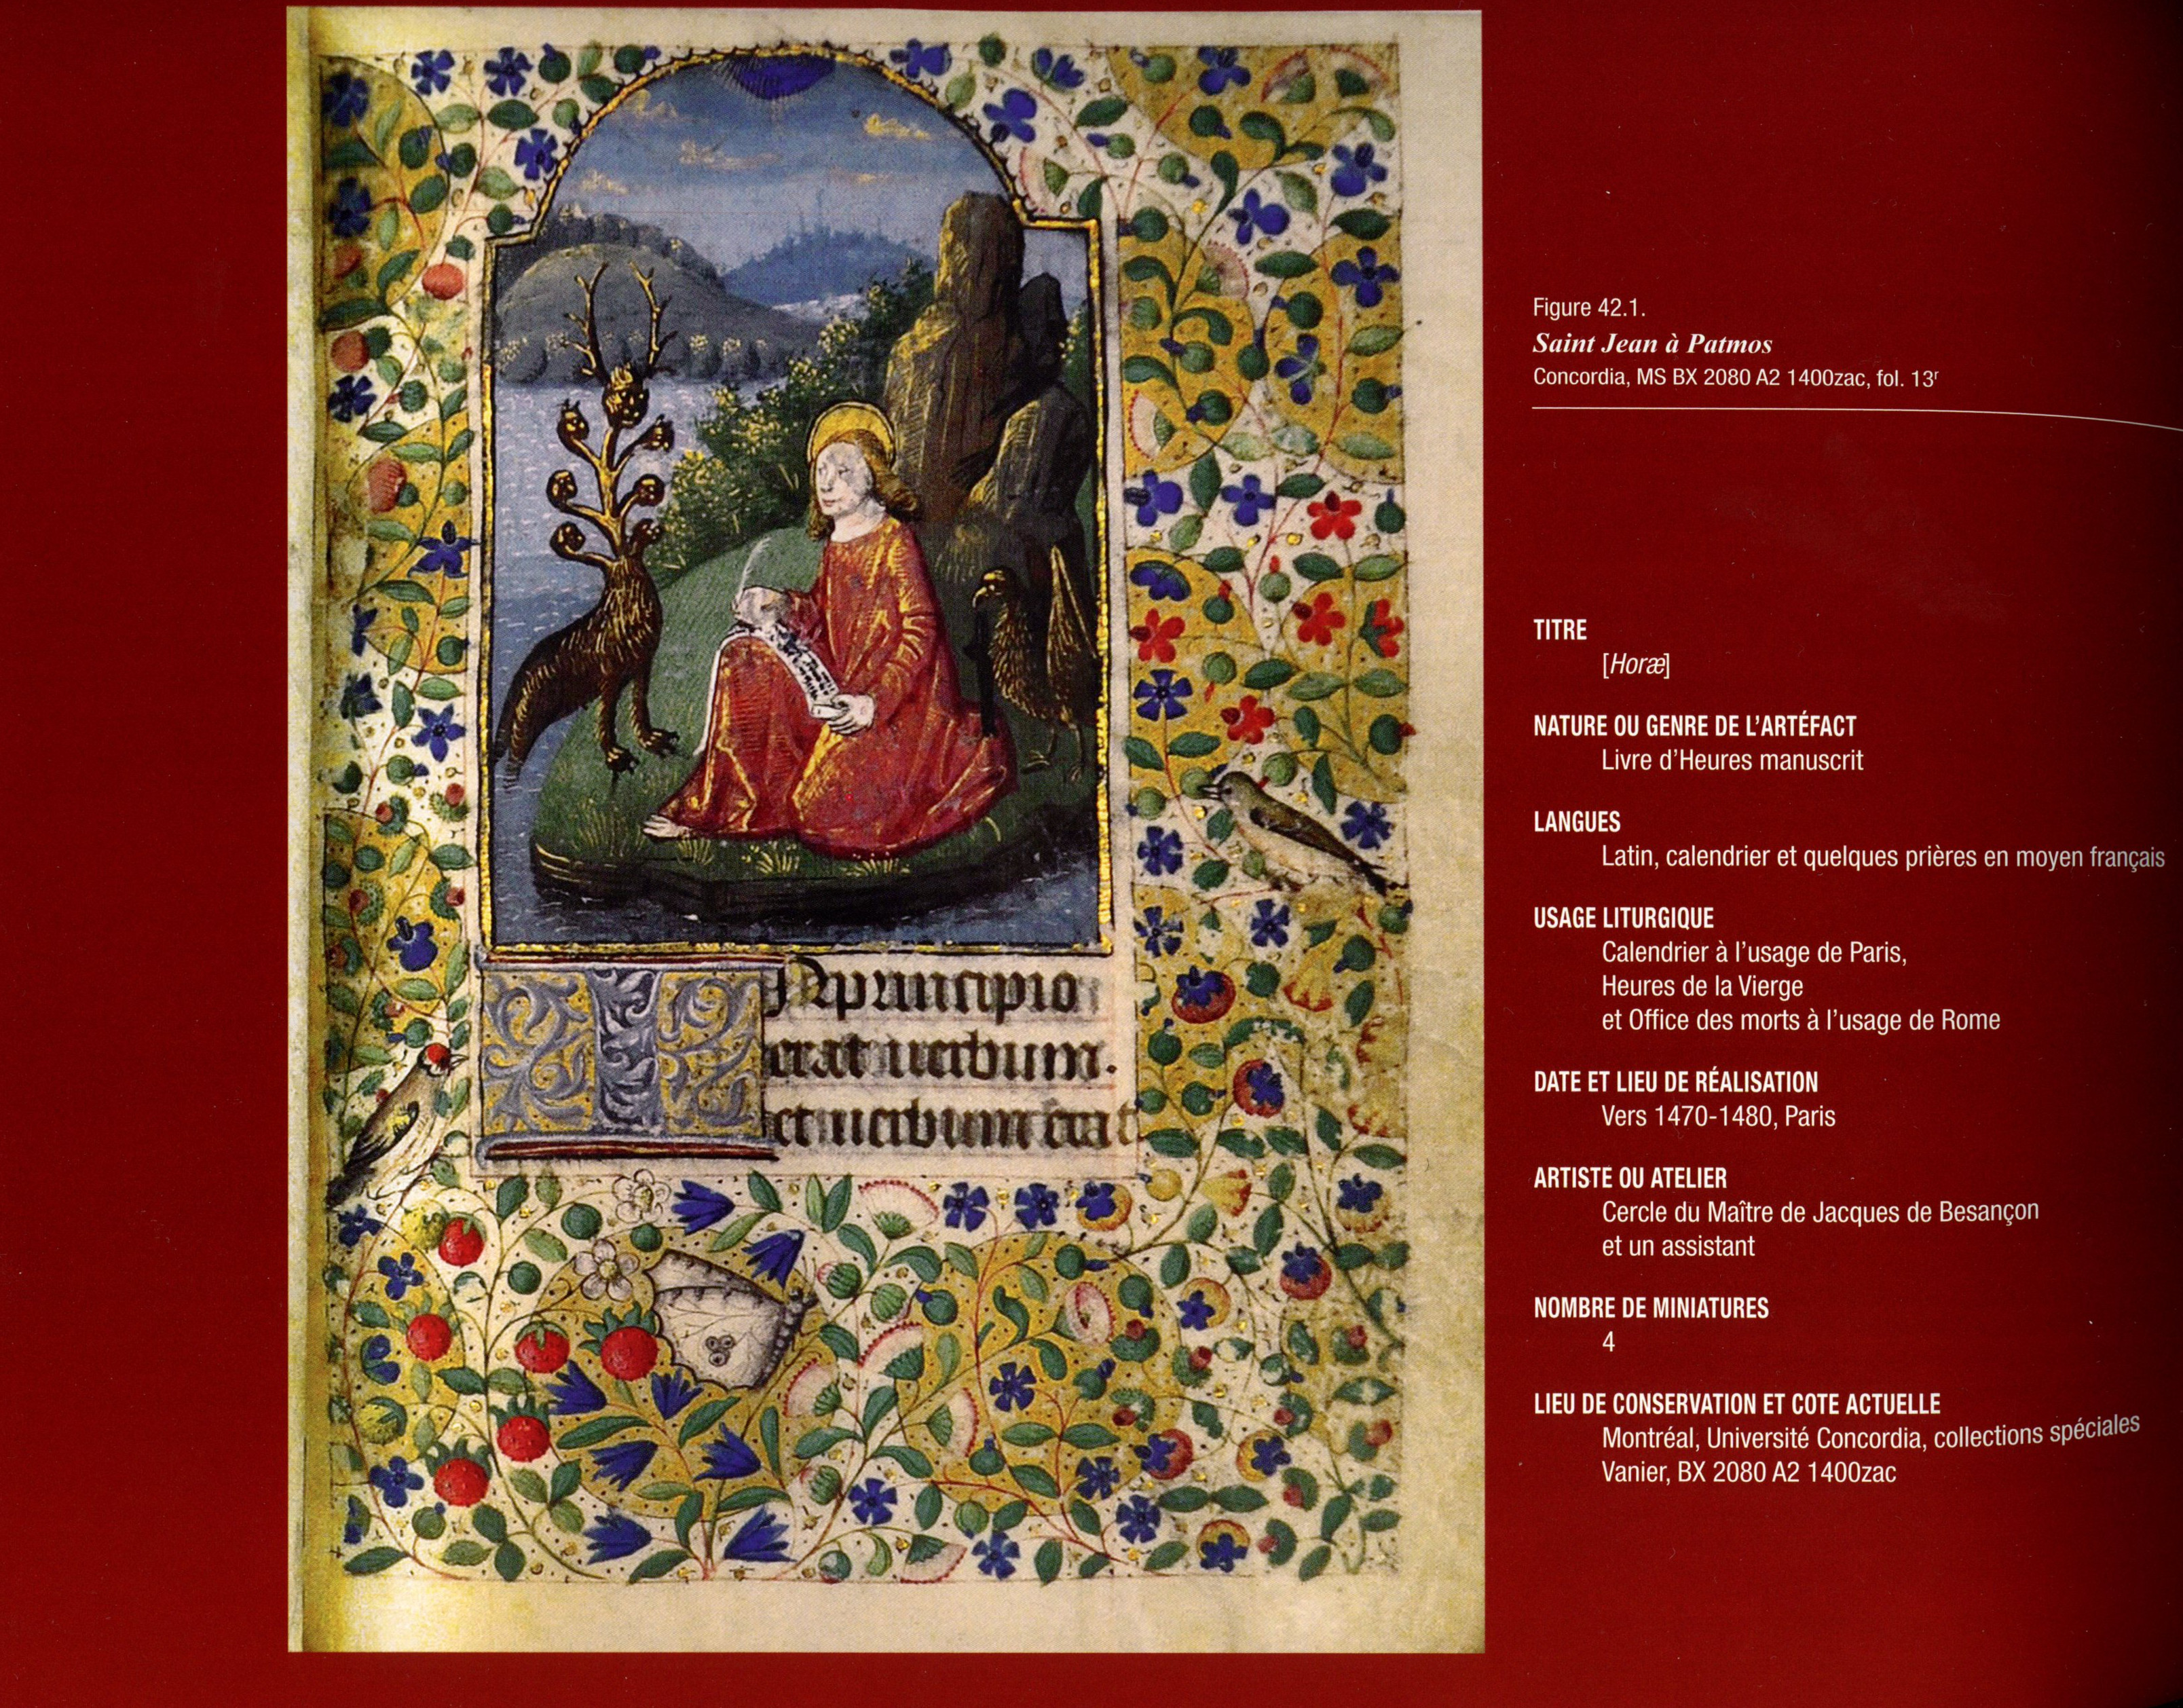 In principio
erat uerbum.
et uerbum erat
Figure 42.1.
Saint Jean à Patmos
Concordia, MS BX 2080 A2 1400zac, fol. 13r
TITRE
[Horæ]
NATURE OU GENRE DE L'ARTÉFACT
Livre d'Heures manuscrit
LANGUES
Latin, calendrier et quelques prières en moyen français
USAGE LITURGIQUE
Calendrier à l'usage de Paris,
Heures de la Vierge
et Office des morts à l'usage de Rome
DATE ET LIEU DE RÉALISATION
Vers 1470-1480, Paris
ARTISTE OU ATELIER
Cercle du Maître de Jacques de Besançon
et un assistant
NOMBRE DE MINIATURES
4
LIEU DE CONSERVATION ET COTE ACTUELLE
Montréal, Université Concordia, collections spéciales
Vanier, BX 2080 A2 1400zac